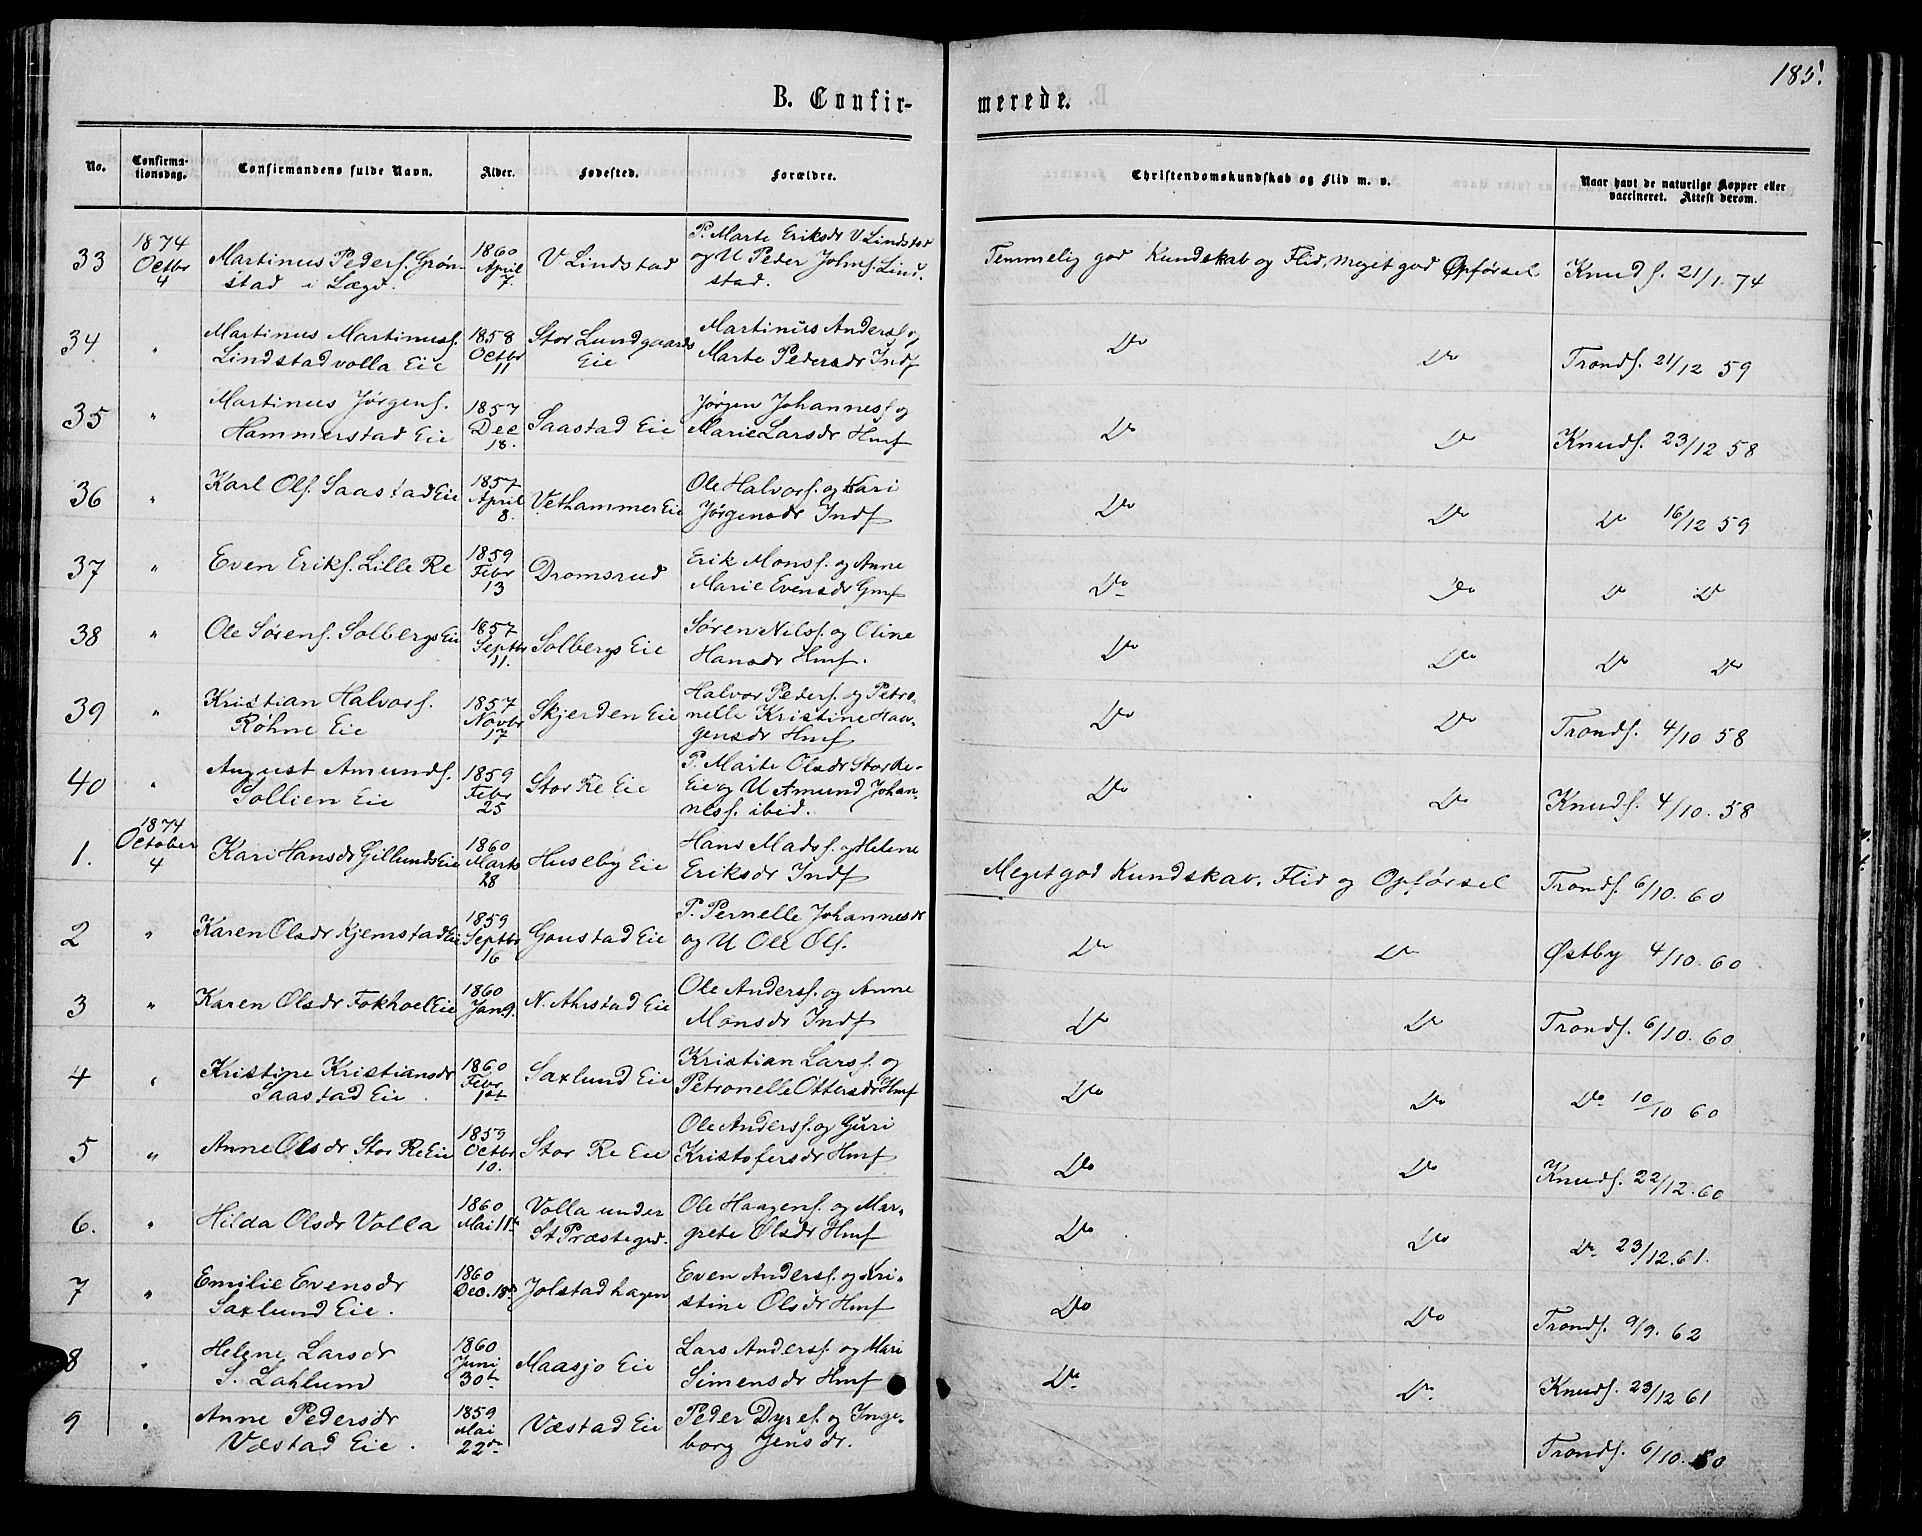 185.
B. Confirmerede.
No. | Confirmationsdag. | Confirmandens fulde Navn. | Alder. | Fødested. | Forældre. | Christendomskundskab og Flid m. v. | Naar havt de naturlige Kopper eller vaccineret. Attest derom.
33 | 1874 Octbr 4 | Martinus Peders. Grønstad i Lægd. | 1860 April 7. | V Lindstad | P. Marte Eriksdr V Lindstad og U Peder Johns. Lindstad. | Temmelig god Kundskab og Flid, meget god Opførsel | Knuds. 21/1. 74
34 | " | Martinus Martinuss. Lindstadvolla Eie | 1858 Octbr 11 | Stor Lundgaards Eie | Martinus Anders. og Marte Pedersdr Indf | Do Do | Tronds. 21/12 59
35 | " | Martinus Jørgens. Hammerstad Eie | 1857 Dec 18. | Saastad Eie | Jørgen Johanness. og Marie Larsdr Hmf | Do Do | Knuds. 23/12 58
36 | " | Karl Ols. Saastad Eie | 1857 April 8. | Vethammer Eie | Ole Halvors. og Kari Jørgensdr Indf | Do Do | Do 16/12 59
37 | " | Even Eriks. Lille Re | 1859 Febr 13 | Dromsrud | Erik Mons. og Anne Marie Evensdr Gmf | Do Do | Do Do
38 | " | Ole Sørens. Solbergs Eie | 1857 Septbr 11. | Solbergs Eie | Søren Nils. og Oline Hansdr Hmf. | Do Do | Do Do
39 | " | Kristian Halvors. Røhne Eie | 1857 Novbr 17 | Skjerden Eie | Halvor Peders. og Petronelle Kristine Haagensdr Hmf | Do Do | Tronds. 4/10 58
40 | " | August Amunds. Sollien Eie | 1859 Febr 25 | Stor Re Eie | P. Marte Olsdr Stor Re-Eie og U Amund Johanness. ibid. | Do Do | Knuds. 4/10. 58
1. | 1874 October 4 | Kari Hansdr Gillunds Eie | 1860 Marts 28 | Huseby Eie | Hans Mads. og Helene Eriksdr Indf | Meget god Kundskab, Flid og Opførsel | Tronds. 6/10. 60
2 | " | Karen Olsdr Kjemstad Eie | 1859 Septbr 16 | Goustad Eie | P. Pernelle Johannesdr og U Ole Ols. | Do Do | Østby 4/10. 60
3 | " | Karen Olsdr Fokhoel Eie | 1860 Jan 9. | N. Ahistad Eie | Ole Anders. og Anne Monsdr Indf | Do Do | Tronds. 6/10. 60
4 | " | Kristine Kristiansdr Saastad Eie | 1860 Febr 1st | Saxlund Eie | Kristian Lars. og Petronelle Ottersdr Hmf | Do Do | Do 10/10 60
5 | " | Anne Olsdr Stor Re Eie | 1859 Octbr 10. | Stor Re Eie | Ole Anders. og Guri Kristofersdr Hmf | Do Do | Knuds. 22/12. 60
6. | " | Hilda Olsdr Volla | 1860 Mai 11te | Volla under St Præstegd. | Ole Haagens. og Margrete Olsdr Hmf | Do Do | Do 23/12. 61.
7 | " | Emilie Evensdr Saxlund Eie. | 1860 Dec. 18de | Jolstadhagen | Even Anders. og Kristine Olsdr Hmf | Do Do | Tronds. 9/9. 62
8 | " | Helene Larsdr S. Lahlum | 1860 Juni 30te | Maasjo Eie | Lars Anders. og Mari Simensdr Hmf | Do Do | Knuds. 23/12 61
9 | " | Anne Pedersdr Væstad Eie. | 1859 Mai 22de | Væstad Eie | Peder Dyres. og Ingeborg Jensdr. | Tronds. 6/10. 60